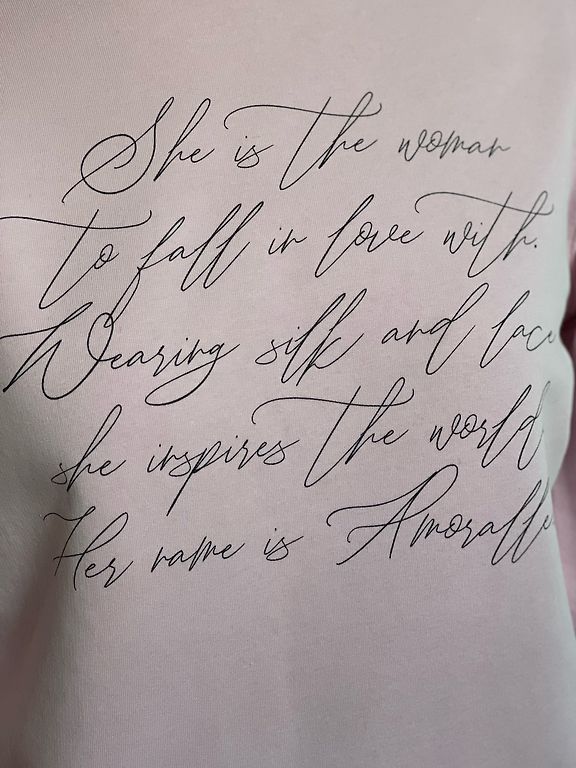 She is the woman
to fall in love with.
Wearing silk and lace
she inspires the world
Her name is Amoralle